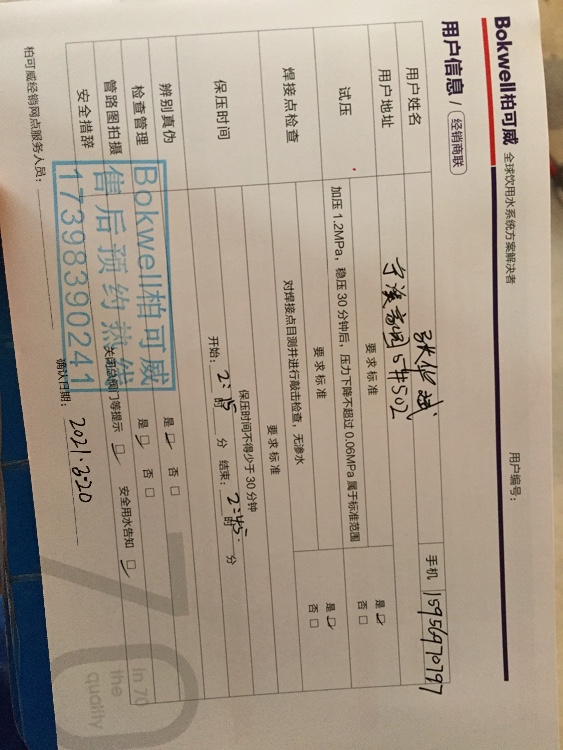 Bokwell柏可威 全球饮用水系统方案解决者
用户编号：
用户信息 / 经销商联
用户姓名 手机 15956970797
用户地址 5#502
要求标准
试压 加压 1.2MPa，稳压 30 分钟后，压力下降不超过 0.06MPa 属于标准范围 是 否
要求标准
焊接点检查 对焊接点目测并进行敲击检查，无渗水 是 否
要求标准
保压时间 保压时间不得少于 30 分钟
开始：2:15 时 分 结束：2:45 时 分
辨别真伪 是 否
检查管理 是 否
管路图拍摄
安全措辞 关闭总阀门等提示 安全用水告知
Bokwell柏可威
售后预约热线
17398390241
柏可威经销网点服务人员： 确认日期：2021.3.20
70
In 70
the
quality